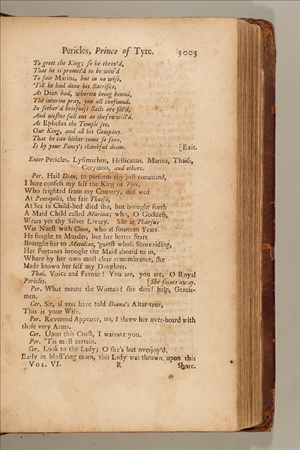 Pericles, Prince of Tyre. 3005
To greet the King; so he thriv'd,
That he is promis'd to be wiv'd
To fair Marina, but in no wise,
'Till he had done his Sacrifice,
As Dian bad, whereto being bound,
The interim pray, you all confound.
In feather'd briefness Sails are fill'd,
And wishes fall out as they're will'd.
At Ephesus the Temple see,
Our King, and all his Company.
That he can hither come so soon,
Is by your Fancy's thankful doom. [Exit.
Enter Pericles, Lysimachus, Hellicanus, Marina, Thaisa,
Cerymon, and others.
Per. Hail Dian, to perform thy just command,
I here confess my self the King of Tyre,
Who frighted from my Country, did wed
At Pentapolis, the fair Thaisa,
At Sea in Child-bed died she, but brought forth
A Maid Child called Marina; who, O Goddess,
Wears yet thy Silver Livery. She at Tharsus
Was Nurst with Cleon, who at fourteen Years
He sought to Murder, but her better Stars
Brought her to Metaline, 'gainst whose Shore riding,
Her Fortunes brought the Maid aboard to us,
Where by her own most clear remembrance, she
Made known her self my Daughter.
Thai. Voice and Favour! You are, you are, O Royal
Pericles. [She faints away.
Per. What means the Woman? she dies! help, Gentle-
men.
Cer. Sir, if you have told Diana's Altar true,
This is your Wife.
Per. Reverend Appearer, no, I threw her over-board with
these very Arms.
Cer. Upon this Coast, I warrant you.
Per. 'Tis most certain.
Cer. Look to the Lady; O she's but overjoy'd.
Early in blust'ring morn, this Lady was thrown upon this
VOL. VI. R Shore.